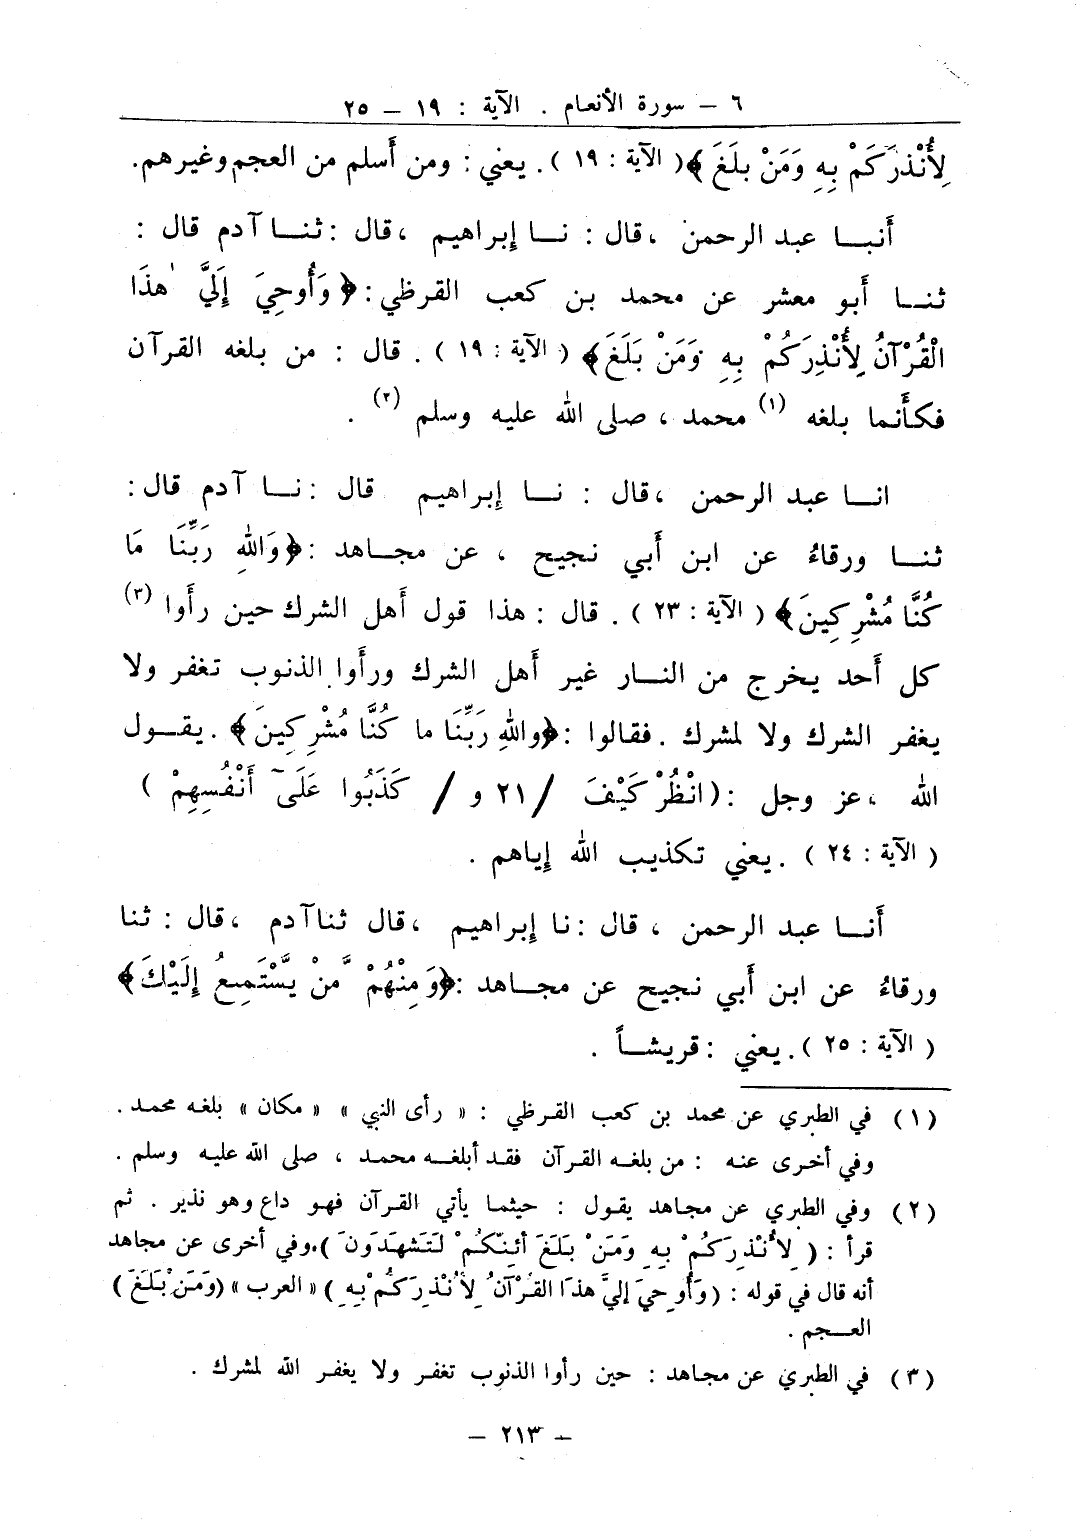 ٦ – سورة الأنعام . الآية : ١٩ – ٢٥
لِأُنْذِرَكَمْ بِهِ وَمَنْ بلَغَ ﴾( الآية : ١٩ ) . يعني : ومن أَسلم من العجم وغيرهم.
أَنبـا عبد الرحمن ، قال : نـا إِبراهيم ، قال : ثنـا آدم قال :
ثنـا أَبو معشر عن محمد بن كعب القرظي : ﴿ وَأُوحِيَ إِلَيَّ هٰذَا
الْقُرْآنُ لِأُنْذِرَكُمْ بِهِ وَمَنْ بَلَغَ﴾ ( الآية : ١٩ ) . قال : من بلغه القرآن
فكأَنما بلغه (١) محمد ، صلى الله عليه وسلم (٢) .
انـا عبد الرحمن ، قال : نـا إِبراهيم قال : نـا آدم قال :
ثنـا ورقاءُ عن ابن أَبي نجيح ، عن مجـاهد : ﴿وَاللهِ رَبِّنَا مَا
كُنَّا مُشْرِكِينَ﴾ ( الآية : ٢٣ ) . قال : هذا قول أَهل الشرك حين رأَوا (٣)
كل أَحد يخرج من النـار غير أَهل الشرك ورأَوا الذنوب تغفر ولا
يغفر الشرك ولا لمشرك . فقالوا : ﴿واللهِ رَبِّنَا ما كُنَّا مُشْرِكِينَ﴾ . يقـول
الله ، عز وجل : ( انْظُرْ كَيْفَ / ٢١ و / كَذَبُوا عَلَىٓ أَنْفُسِهِمْ )
( الآية : ٢٤ ) . يعني تكذيب الله إِياهم .
أَنـا عبد الرحمن ، قال : نا إِبراهيم ، قال ثنا آدم ، قال : ثنا
ورقاءُ عن ابن أَبي نجيح عن مجـاهد : ﴿وَمِنْهُمْ مَّنْ يَّسْتَمِعُ إِلَيْكَ﴾
( الآية : ٢٥ ) . يعني : قريشـاً .
(١) في الطبري عن محمد بن كعب القرظي : « رأى النبي » « مكان » بلغه محمد .
وفي أخرى عنه : من بلغـه القرآن فقد أبلغـه محمد ، صلى الله عليه وسلم .
(٢) وفي الطبري عن مجاهد يقول : حيثما يأتي القرآن فهو داع وهو نذير . ثم
قرأ : ( لِأُنْذِرَكُمْ بِهِ وَمَنْ بَلَغَ أئِنّكُمْ لَتَشهَدَونَ ). وفي أخرى عن مجاهد
أنه قال في قوله : ( وَأُوحِيَ إليَّ هذَا القُرْآنُ لِأُنْذِرَكُمْ بِهِ ) « العرب » ( وَمَنْ بَلَغَ )
العـجم .
(٣) في الطبري عن مجاهد : حين رأوا الذنوب تغفر ولا يغفر الله لمشرك .
– ٢١٣ –